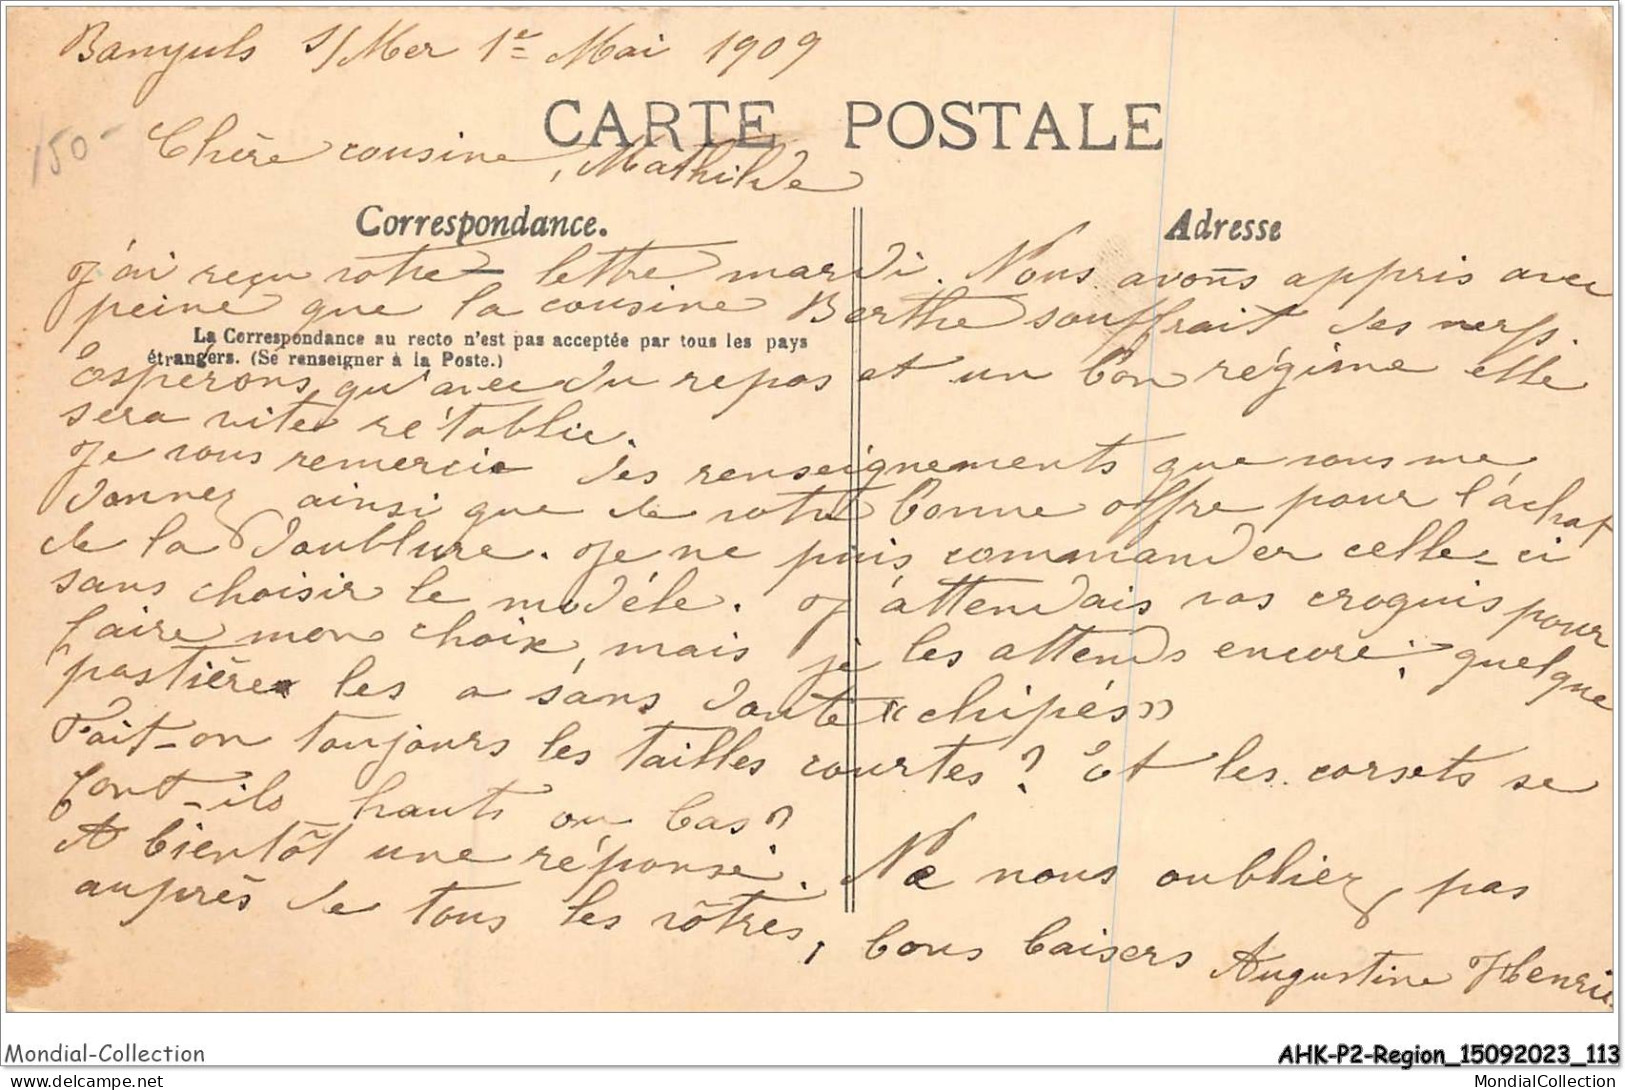 Banyuls s/Mer 1er Mai 1909
CARTE POSTALE
150-
Chère cousine, Mathilde
Correspondance.
Adresse
J'ai reçu votre lettre mardi. Nous avons appris avec
peine que la cousine Berthe souffrait des nerfs.
La Correspondance au recto n'est pas acceptée par tous les pays
étrangers. (Se renseigner à la Poste.)
Espérons qu'avec du repos et un bon régime elle
sera vite rétablie.
Je vous remercie des renseignements que vous me
donnez ainsi que de votre bonne offre pour l'achat
de la doublure. Je ne puis commander celle-ci
sans choisir le modéle. J'attendais vos croquis pour
faire mon choix, mais je les attends encore; quelque
postière les a sans doute «chipés»
Fait-on toujours les tailles courtes? Et les corsets se
font-ils hauts ou bas?
A bientôt une réponse. Ne nous oubliez pas
auprès de tous les vôtres, bons baisers Augustine Henri
Mondial-Collection
AHK-P2-Region_15092023_113
delcampe.net
MondialCollection